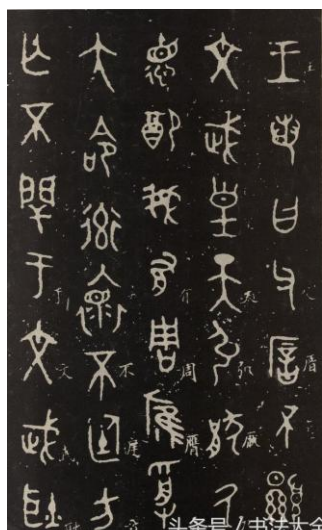 王若曰父厝不顯
文武皇天弘猒厥
德配我有周膺受
大命率懷不廷方
亡不閈于文武耿
头条号 / 书法大全